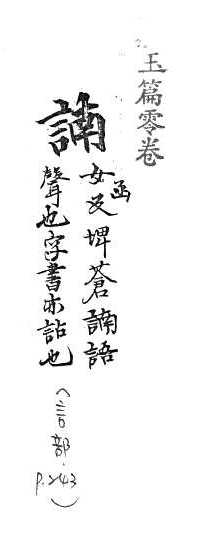 玉篇零卷
諵
女函反埤蒼諵語
聲也字書亦詀也(言部.P.243)